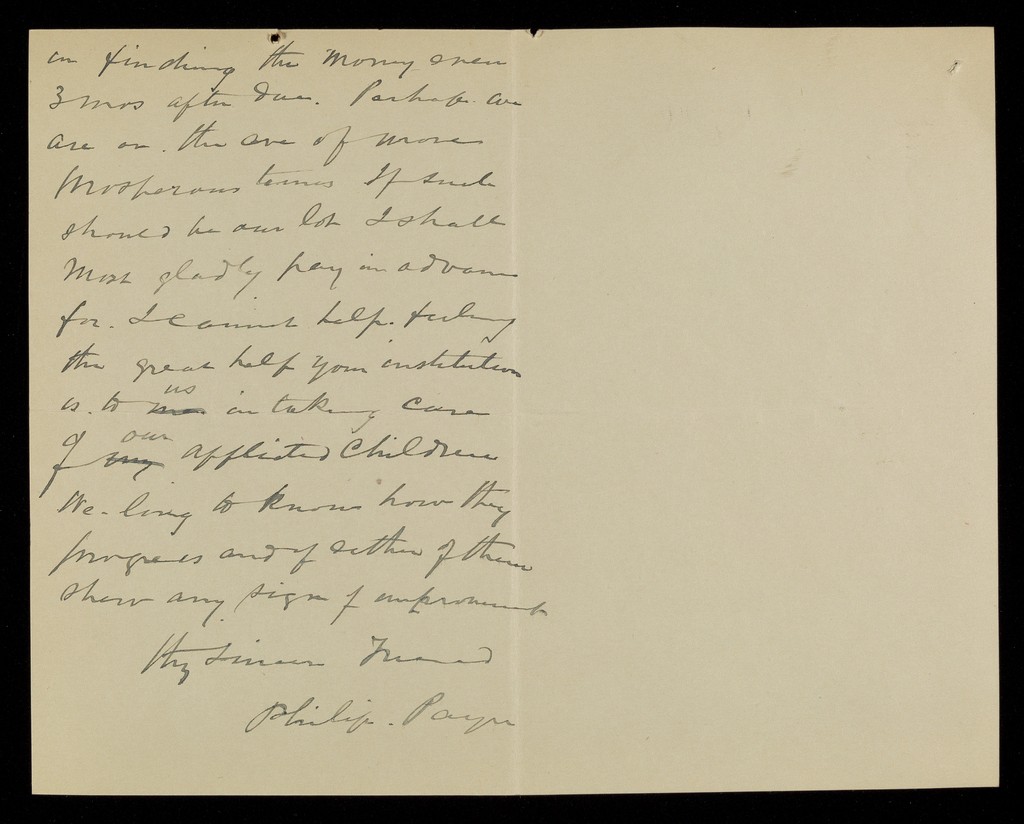 in finding the money even
3 mos after due. Perhaps we
are on the eve of more
prosperous times If such
should be our lot I shall
most gladly pay in advance
for. I cannot help. feeling
the great help your institution
is. to me us in taking care
of my our afflicted children
We long to know how they
progress and if either of them
show any sign of improvement
thy sincere Friend
Philip. Payne